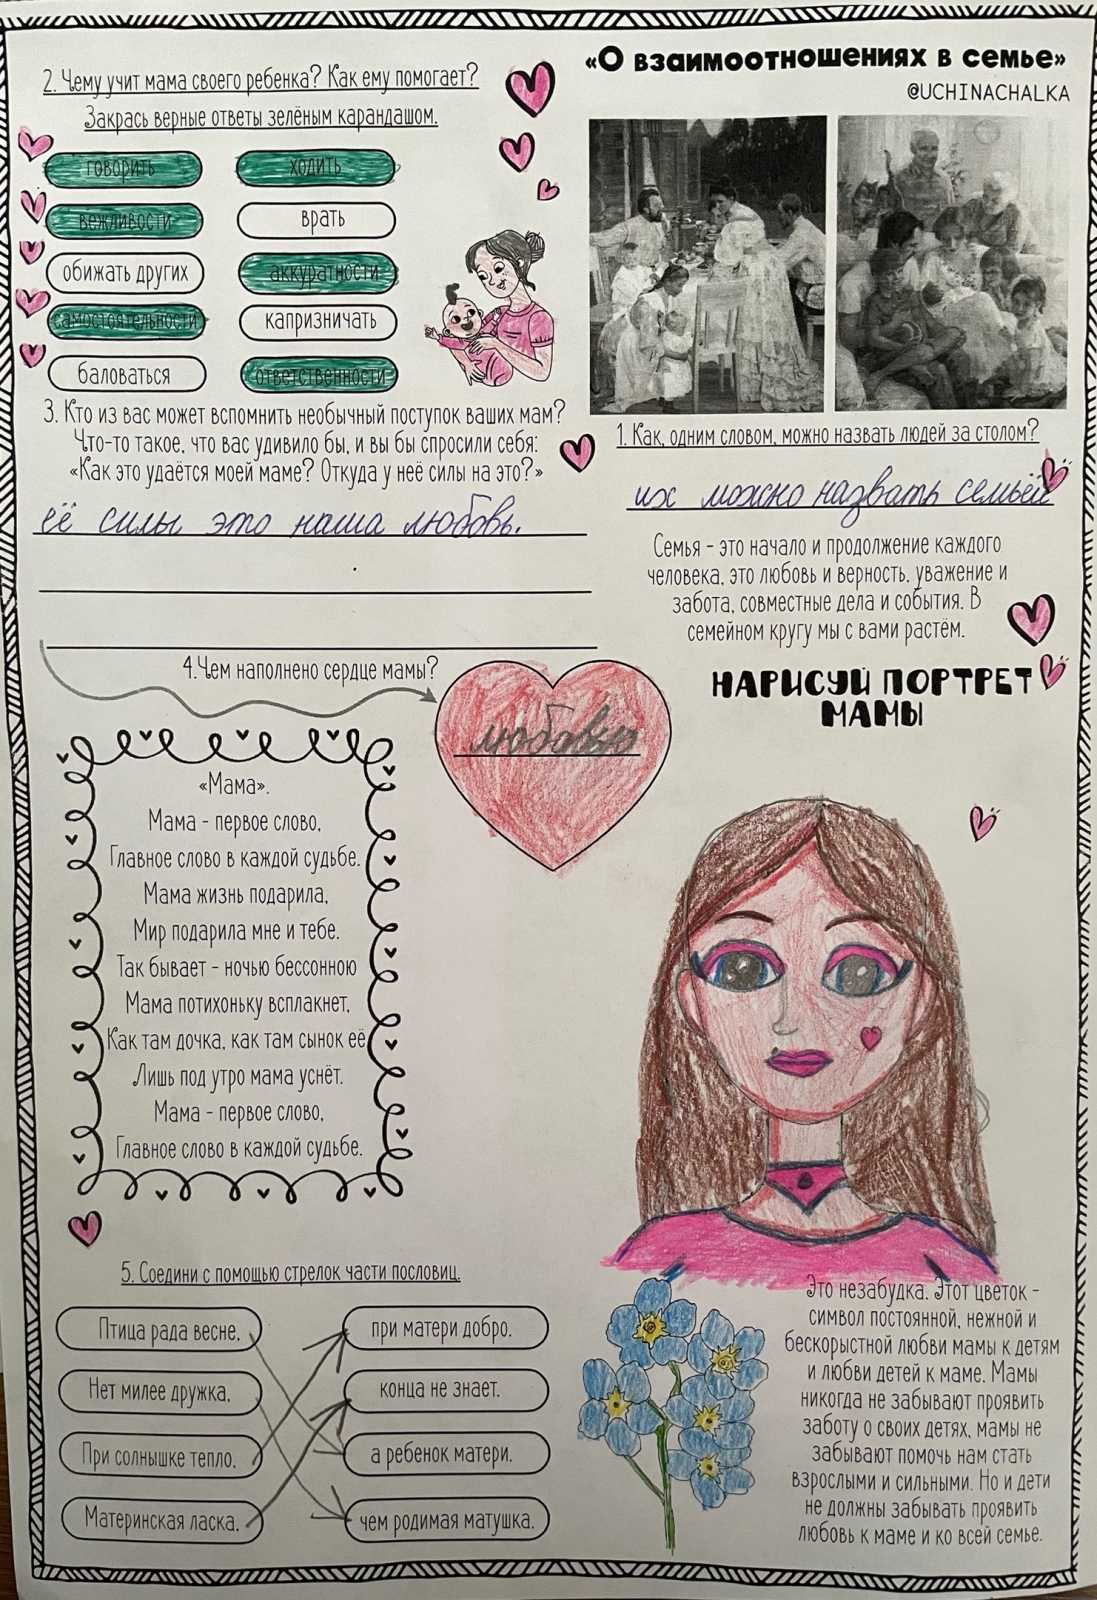 «О взаимоотношениях в семье»
@UCHINACHALKA
2. Чему учит мама своего ребенка? Как ему помогает?
Закрась верные ответы зелёным карандашом.
говорить
ходить
вежливости
врать
обижать других
аккуратности
самостоятельности
капризничать
баловаться
ответственности
3. Кто из вас может вспомнить необычный поступок ваших мам?
Что-то такое, что вас удивило бы, и вы бы спросили себя:
«Как это удаётся моей маме? Откуда у неё силы на это?»
её силы это наша любовь.
1. Как, одним словом, можно назвать людей за столом?
их можно назвать семьёй
Семья - это начало и продолжение каждого
человека, это любовь и верность, уважение и
забота, совместные дела и события. В
семейном кругу мы с вами растём.
4.Чем наполнено сердце мамы?
любовью
НАРИСУЙ ПОРТРЕТ
МАМЫ
«Мама».
Мама - первое слово,
Главное слово в каждой судьбе.
Мама жизнь подарила,
Мир подарила мне и тебе.
Так бывает - ночью бессонною
Мама потихоньку всплакнет,
Как там дочка, как там сынок её,
Лишь под утро мама уснёт.
Мама - первое слово,
Главное слово в каждой судьбе.
5. Соедини с помощью стрелок части пословиц.
Птица рада весне,
при матери добро.
Нет милее дружка,
конца не знает.
При солнышке тепло,
а ребенок матери.
Материнская ласка
чем родимая матушка.
Это незабудка. Этот цветок -
символ постоянной, нежной и
бескорыстной любви мамы к детям
и любви детей к маме. Мамы
никогда не забывают проявить
заботу о своих детях, мамы не
забывают помочь нам стать
взрослыми и сильными. Но и дети
не должны забывать проявить
любовь к маме и ко всей семье.